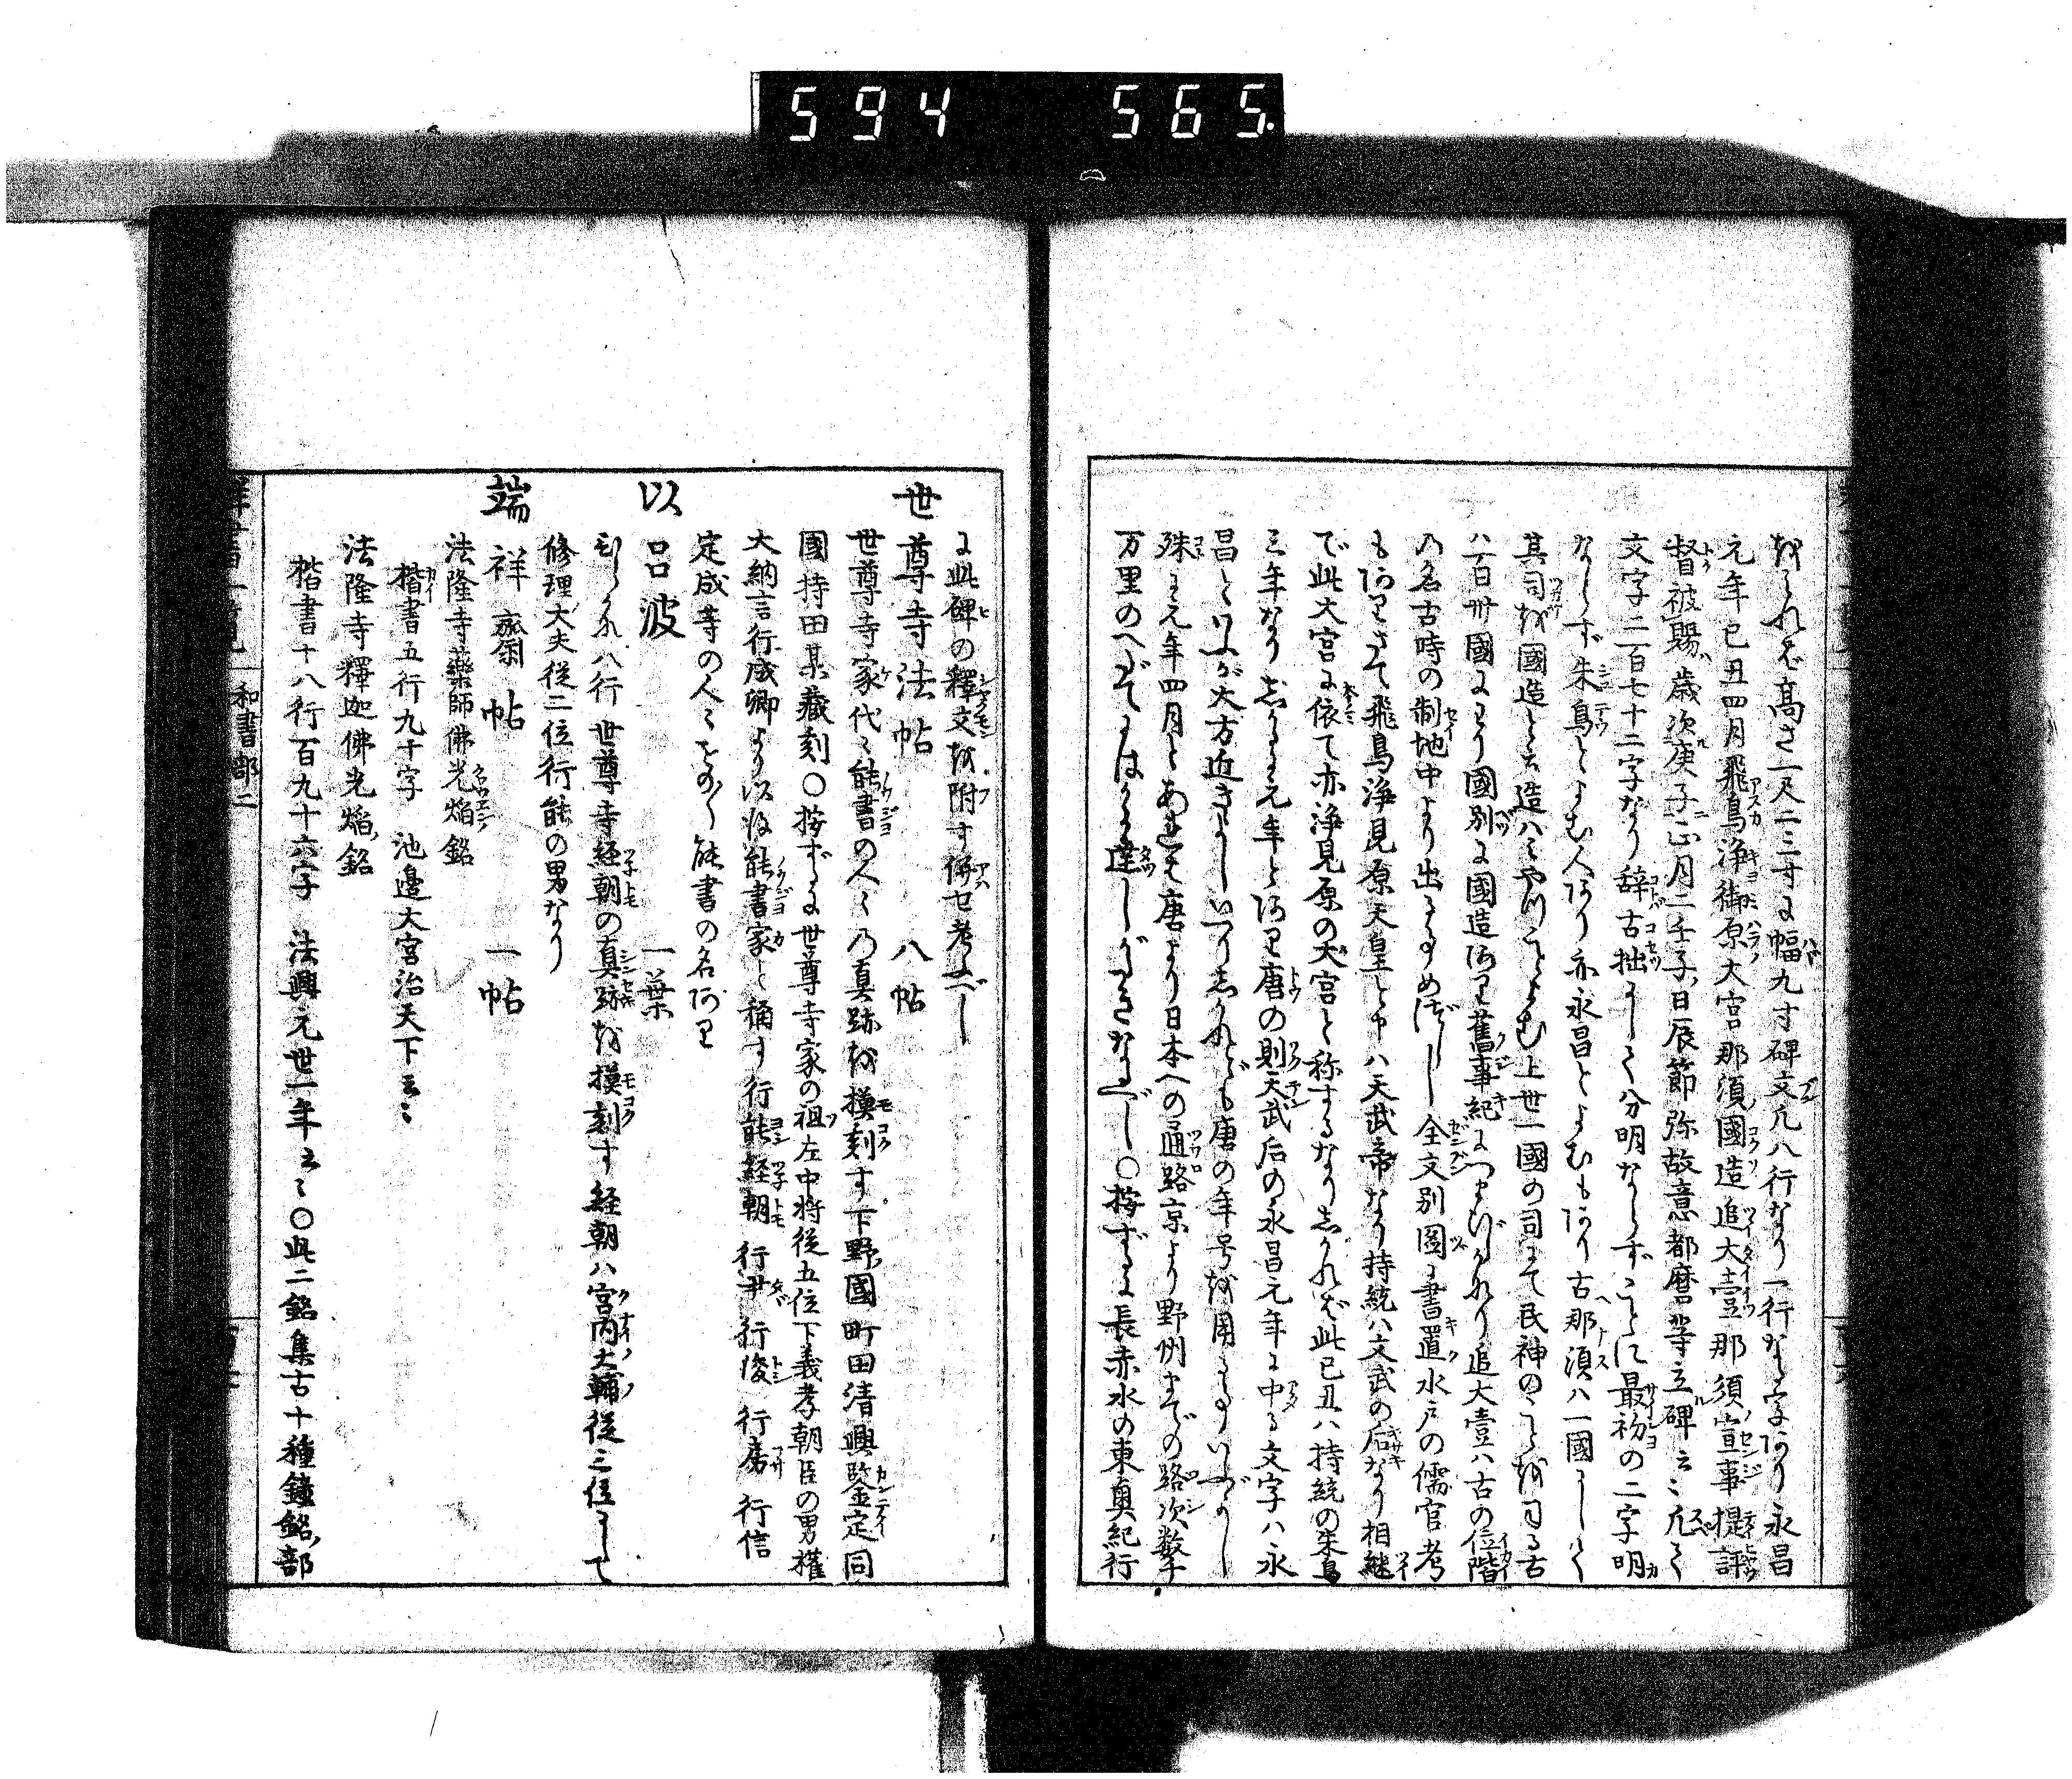 594 565.
越られば高さ一尺二三寸に幅九寸碑文凡八行なり一行な字あり永昌
元年已丑四月飛鳥浄御原大宮那須國造追大壹那須宣事提評
督被賜歳次庚子正月二壬子日辰節弥故意都麿等立碑云ミ凡て
文字二百七十二字なり辞古拙にして分明ならずことに最初の二字明
ならず朱鳥とよむ人あり亦永昌とよむもあり古那須ハ一國にして
其司を國造と云造ハミやつことよむ上世一國の司にて民神のことを司る古
ハ百卅國にわり國別に國造あり舊事紀につまびらかなり追大壹ハ古の位階
の名古時の制地中より出るゆゑめづらし全文別圖に書置水戸の儒官考
もありさて飛鳥浄見原天皇と申ハ天武帝なり持統ハ文武の后なり相継
で此大宮に依て亦浄見原の大宮と称するなりしかれば此已丑ハ持統の朱鳥
三年なりしかるに元年とあり唐の則天武后の永昌元年に中る文字ハ永
昌といふが大方近きよしいへりしかれども唐の年号を用るゆゑいぶかし
殊に元年四月とあれば唐より日本への通路京より野州までの路次数千
万里のへだてにはかに達しがたきなるべし〇按ずるに長赤水の東奥紀行
に此碑の釋文を附す併せ考ふべし
世尊寺法帖 八帖
世尊寺家代々能書の人々の真跡を模刻す下野國町田清興鑒定同
國持田某蔵刻〇按ずるに世尊寺家の祖左中将従五位下義孝朝臣の男権
大納言行成卿より以後能書家と稱す行能経朝 行尹 行俊 行房 行信
定成等の人々その外能書の名あり
以呂波 一葉
ひらかな八行 世尊寺経朝の真跡を模刻す 経朝ハ宮内大輔従三位にして
修理大夫従三位行能の男なり
端祥齋帖 一帖
法隆寺藥師佛光焔銘
楷書五行九十字 池邊大宮治天下云々
法隆寺釋迦佛光焔銘
楷書十八行百九十六字 法興元世一年云々〇此二銘集古十種鐘銘部
和書部二